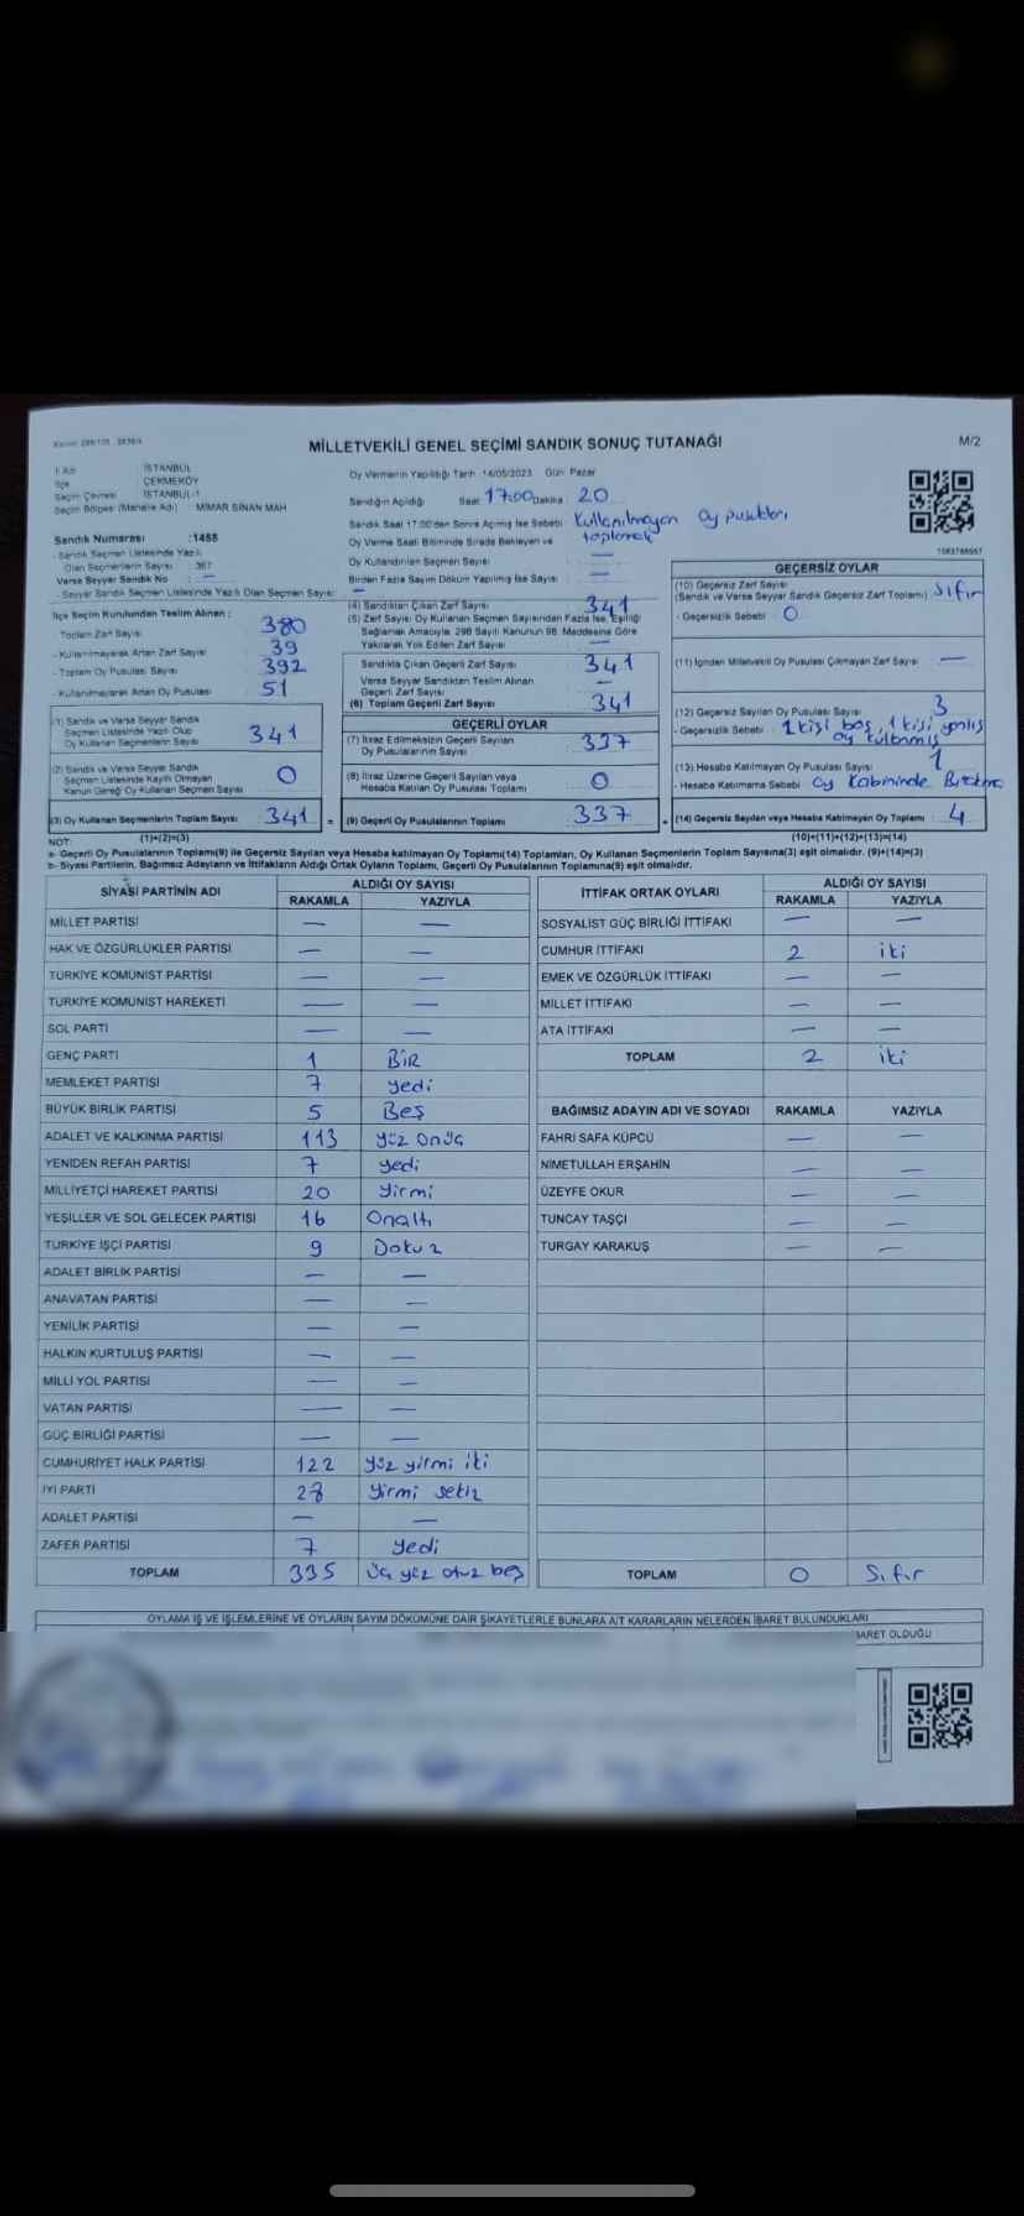 MİLLETVEKİLİ GENEL SEÇİMİ SANDIK SONUÇ TUTANAĞI
M/2
İSTANBUL
İlçe ÇEKMEKÖY
Seçim Çevresi İSTANBUL-1
Seçim Bölgesi (Mahalle Adı) : MİMAR SİNAN MAH
Sandık Numarası :1488
- Sandık Seçmen Listesinde Yazılı
Olan Seçmenlerin Sayısı 367
Varsa Seyyar Sandık No : —
- Seyyar Sandık Seçmen Listesinde Yazılı Olan Seçmen Sayısı: —
İlçe Seçim Kurulundan Teslim Alınan :
Toplam Zarf Sayısı 380
- Kullanılmayarak Artan Zarf Sayısı 39
- Toplam Oy Pusulası Sayısı 392
- Kullanılmayarak Artan Oy Pusulası 51
(1) Sandık ve Varsa Seyyar Sandık
Seçmen Listesinde Yazılı Olup
Oy Kullanan Seçmenlerin Sayısı 341
(2) Sandık ve Varsa Seyyar Sandık
Seçmen Listesinde Kayıtlı Olmayan
Kanun Gereği Oy Kullanan Seçmen Sayısı 0
(3) Oy Kullanan Seçmenlerin Toplam Sayısı 341
(1)+(2)=(3)
Oy Vermenin Yapıldığı Tarih 14/05/2023 Gün Pazar
Sandığın Açıldığı Saat 17:00 Dakika 20
Sandık Saat 17:00'den Sonra Açılmış İse Sebebi Kullanılmayan oy pusulaları
toplamak
Oy Verme Saati Bitiminde Sırada Bekleyen ve
Oy Kullandırılan Seçmen Sayısı —
Birden Fazla Sayım Döküm Yapılmış İse Sayısı —
(4) Sandıktan Çıkan Zarf Sayısı 341
(5) Zarf Sayısı Oy Kullanan Seçmen Sayısından Fazla İse, Eşitliği
Sağlamak Amacıyla 298 Sayılı Kanunun 98. Maddesine Göre
Yakılarak Yok Edilen Zarf Sayısı —
Sandıkta Çıkan Geçerli Zarf Sayısı 341
Varsa Seyyar Sandıktan Teslim Alınan
Geçerli Zarf Sayısı —
(6) Toplam Geçerli Zarf Sayısı 341
GEÇERLİ OYLAR
(7) İtiraz Edilmeksizin Geçerli Sayılan
Oy Pusulalarının Sayısı 337
(8) İtiraz Üzerine Geçerli Sayılan veya
Hesaba Katılan Oy Pusulası Toplamı 0
(9) Geçerli Oy Pusulalarının Toplamı 337
GEÇERSİZ OYLAR
(10) Geçersiz Zarf Sayısı
(Sandık ve Varsa Seyyar Sandık Geçersiz Zarf Toplamı) Sıfır
- Geçersizlik Sebebi 0
(11) İçinden Milletvekili Oy Pusulası Çıkmayan Zarf Sayısı —
(12) Geçersiz Sayılan Oy Pusulası Sayısı 3
- Geçersizlik Sebebi 2 kişi boş, 1 kişi yanlış
oy kullanmış
(13) Hesaba Katılmayan Oy Pusulası Sayısı 1
- Hesaba Katılmama Sebebi Oy Kabininde
(14) Geçersiz Sayılan veya Hesaba Katılmayan Oy Toplamı 4
(10)+(11)+(12)+(13)=(14)
NOT:
a- Geçerli Oy Pusulalarının Toplamı(9) ile Geçersiz Sayılan veya Hesaba katılmayan Oy Toplamı(14) Toplamları, Oy Kullanan Seçmenlerin Toplam Sayısına(3) eşit olmalıdır. (9)+(14)=(3)
b- Siyasi Partilerin, Bağımsız Adayların ve İttifakların Aldığı Ortak Oyların Toplamı, Geçerli Oy Pusulalarının Toplamına(9) eşit olmalıdır.
SİYASİ PARTİNİN ADI ALDIĞI OY SAYISI
RAKAMLA YAZIYLA
MİLLET PARTİSİ — —
HAK VE ÖZGÜRLÜKLER PARTİSİ — —
TÜRKİYE KOMÜNİST PARTİSİ — —
TÜRKİYE KOMÜNİST HAREKETİ — —
SOL PARTİ — —
GENÇ PARTİ 1 BİR
MEMLEKET PARTİSİ 7 yedi
BÜYÜK BİRLİK PARTİSİ 5 Beş
ADALET VE KALKINMA PARTİSİ 113 yüz onüç
YENİDEN REFAH PARTİSİ 7 yedi
MİLLİYETÇİ HAREKET PARTİSİ 20 yirmi
YEŞİLLER VE SOL GELECEK PARTİSİ 16 Onaltı
TÜRKİYE İŞÇİ PARTİSİ 9 Dokuz
ADALET BİRLİK PARTİSİ — —
ANAVATAN PARTİSİ — —
YENİLİK PARTİSİ — —
HALKIN KURTULUŞ PARTİSİ — —
MİLLİ YOL PARTİSİ — —
VATAN PARTİSİ — —
GÜÇ BİRLİĞİ PARTİSİ — —
CUMHURİYET HALK PARTİSİ 122 yüz yirmi iki
İYİ PARTİ 28 yirmi sekiz
ADALET PARTİSİ — —
ZAFER PARTİSİ 7 yedi
TOPLAM 335 üç yüz otuz beş
İTTİFAK ORTAK OYLARI ALDIĞI OY SAYISI
RAKAMLA YAZIYLA
SOSYALİST GÜÇ BİRLİĞİ İTTİFAKI — —
CUMHUR İTTİFAKI 2 iki
EMEK VE ÖZGÜRLÜK İTTİFAKI — —
MİLLET İTTİFAKI — —
ATA İTTİFAKI — —
TOPLAM 2 iki
BAĞIMSIZ ADAYIN ADI VE SOYADI RAKAMLA YAZIYLA
FAHRİ SAFA KÜPCÜ — —
NİMETULLAH ERŞAHİN — —
ÜZEYFE OKUR — —
TUNCAY TAŞÇI — —
TURGAY KARAKUŞ — —
TOPLAM 0 Sıfır
OYLAMA İŞ VE İŞLEMLERİNE VE OYLARIN SAYIM DÖKÜMÜNE DAİR ŞİKAYETLERLE BUNLARA AİT KARARLARIN NELERDEN İBARET BULUNDUKLARI
OLDUĞU